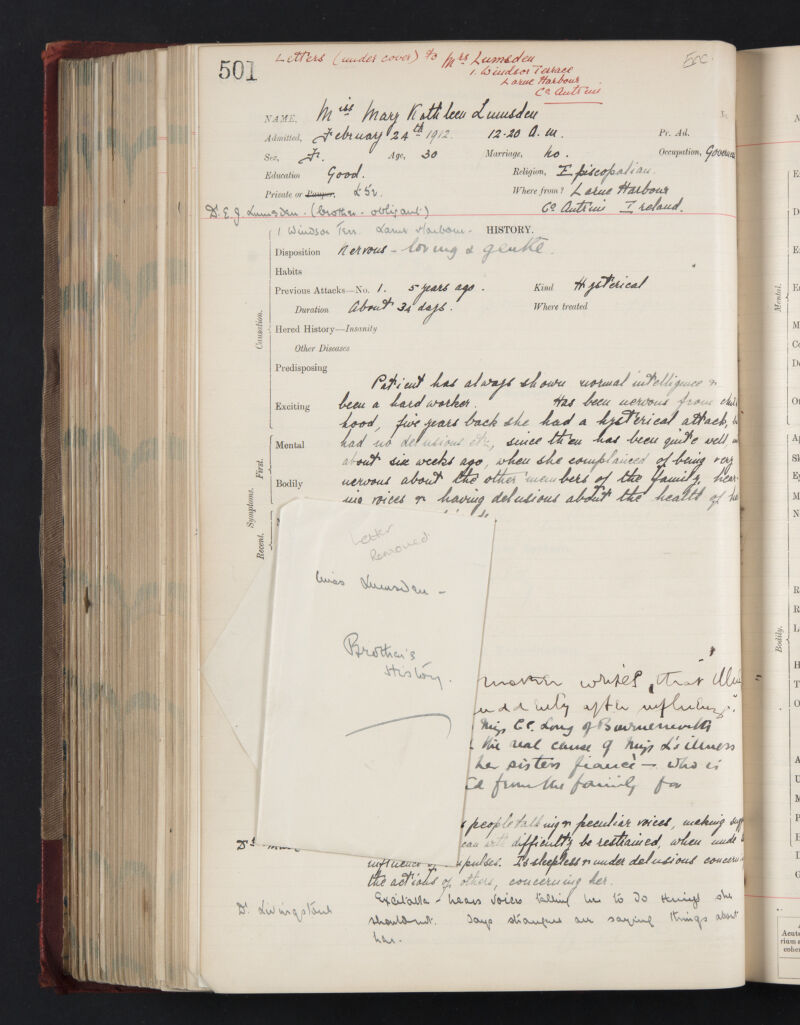 501
Letters (under cover) to Mrs Lumsden
1 Windsor Terrace
Larne Harbour
Co Antrim
NAME, Miss Mary Kathleen Lumsden
Admitted, February 24th 1912. 12-20 a.m. Pr. Ad.
Sex, F. Age, 30 Marriage, No. Occupation, Govern
Education Good. Religion, Episcopalian.
Private or Pauper, £52. Where from? Larne Harbour
Dr. E. J. Lumsden. (brother - obligant) Co Antrim Ireland.
1 Windsor Terr. Larne Harbour. HISTORY.
Disposition Nervous - loving & gentle.
Habits
Previous Attacks—No. 1. 5 years ago. Kind Hysterical
Duration About 3½ days. Where treated
Causation.
Hered History—Insanity
Other Diseases
Predisposing
Patient has always shown normal intelligence &
Exciting been a hard worker. Has been nervous from child
hood, five years back she had a hysterical attack,
Mental had no delusions etc, since then has been quite well
about six weeks ago, when she complained of being very
Bodily nervous about the other members of the family, hear-
ing voices & having delusions about the health of
Symptoms.
First.
Recent.
Letter
Removed
Miss Lumsden -
Brother's
History.
mother writes, that
suddenly after influenza."
Miss C.C. Long of Bournemouth
the real cause of Miss L's illness
her sisters fiancé — who is
from the family for
people talking & peculiar voices, making
can with difficulty be restrained, when unde
influence of impulses. Is sleepless & under delusions concern
the actions of others, concerning her.
Dr. Livingstone Excitable - hears voices telling her to do things she
should not. Says strangers are saying things about
her.
Mental.
Bodily.